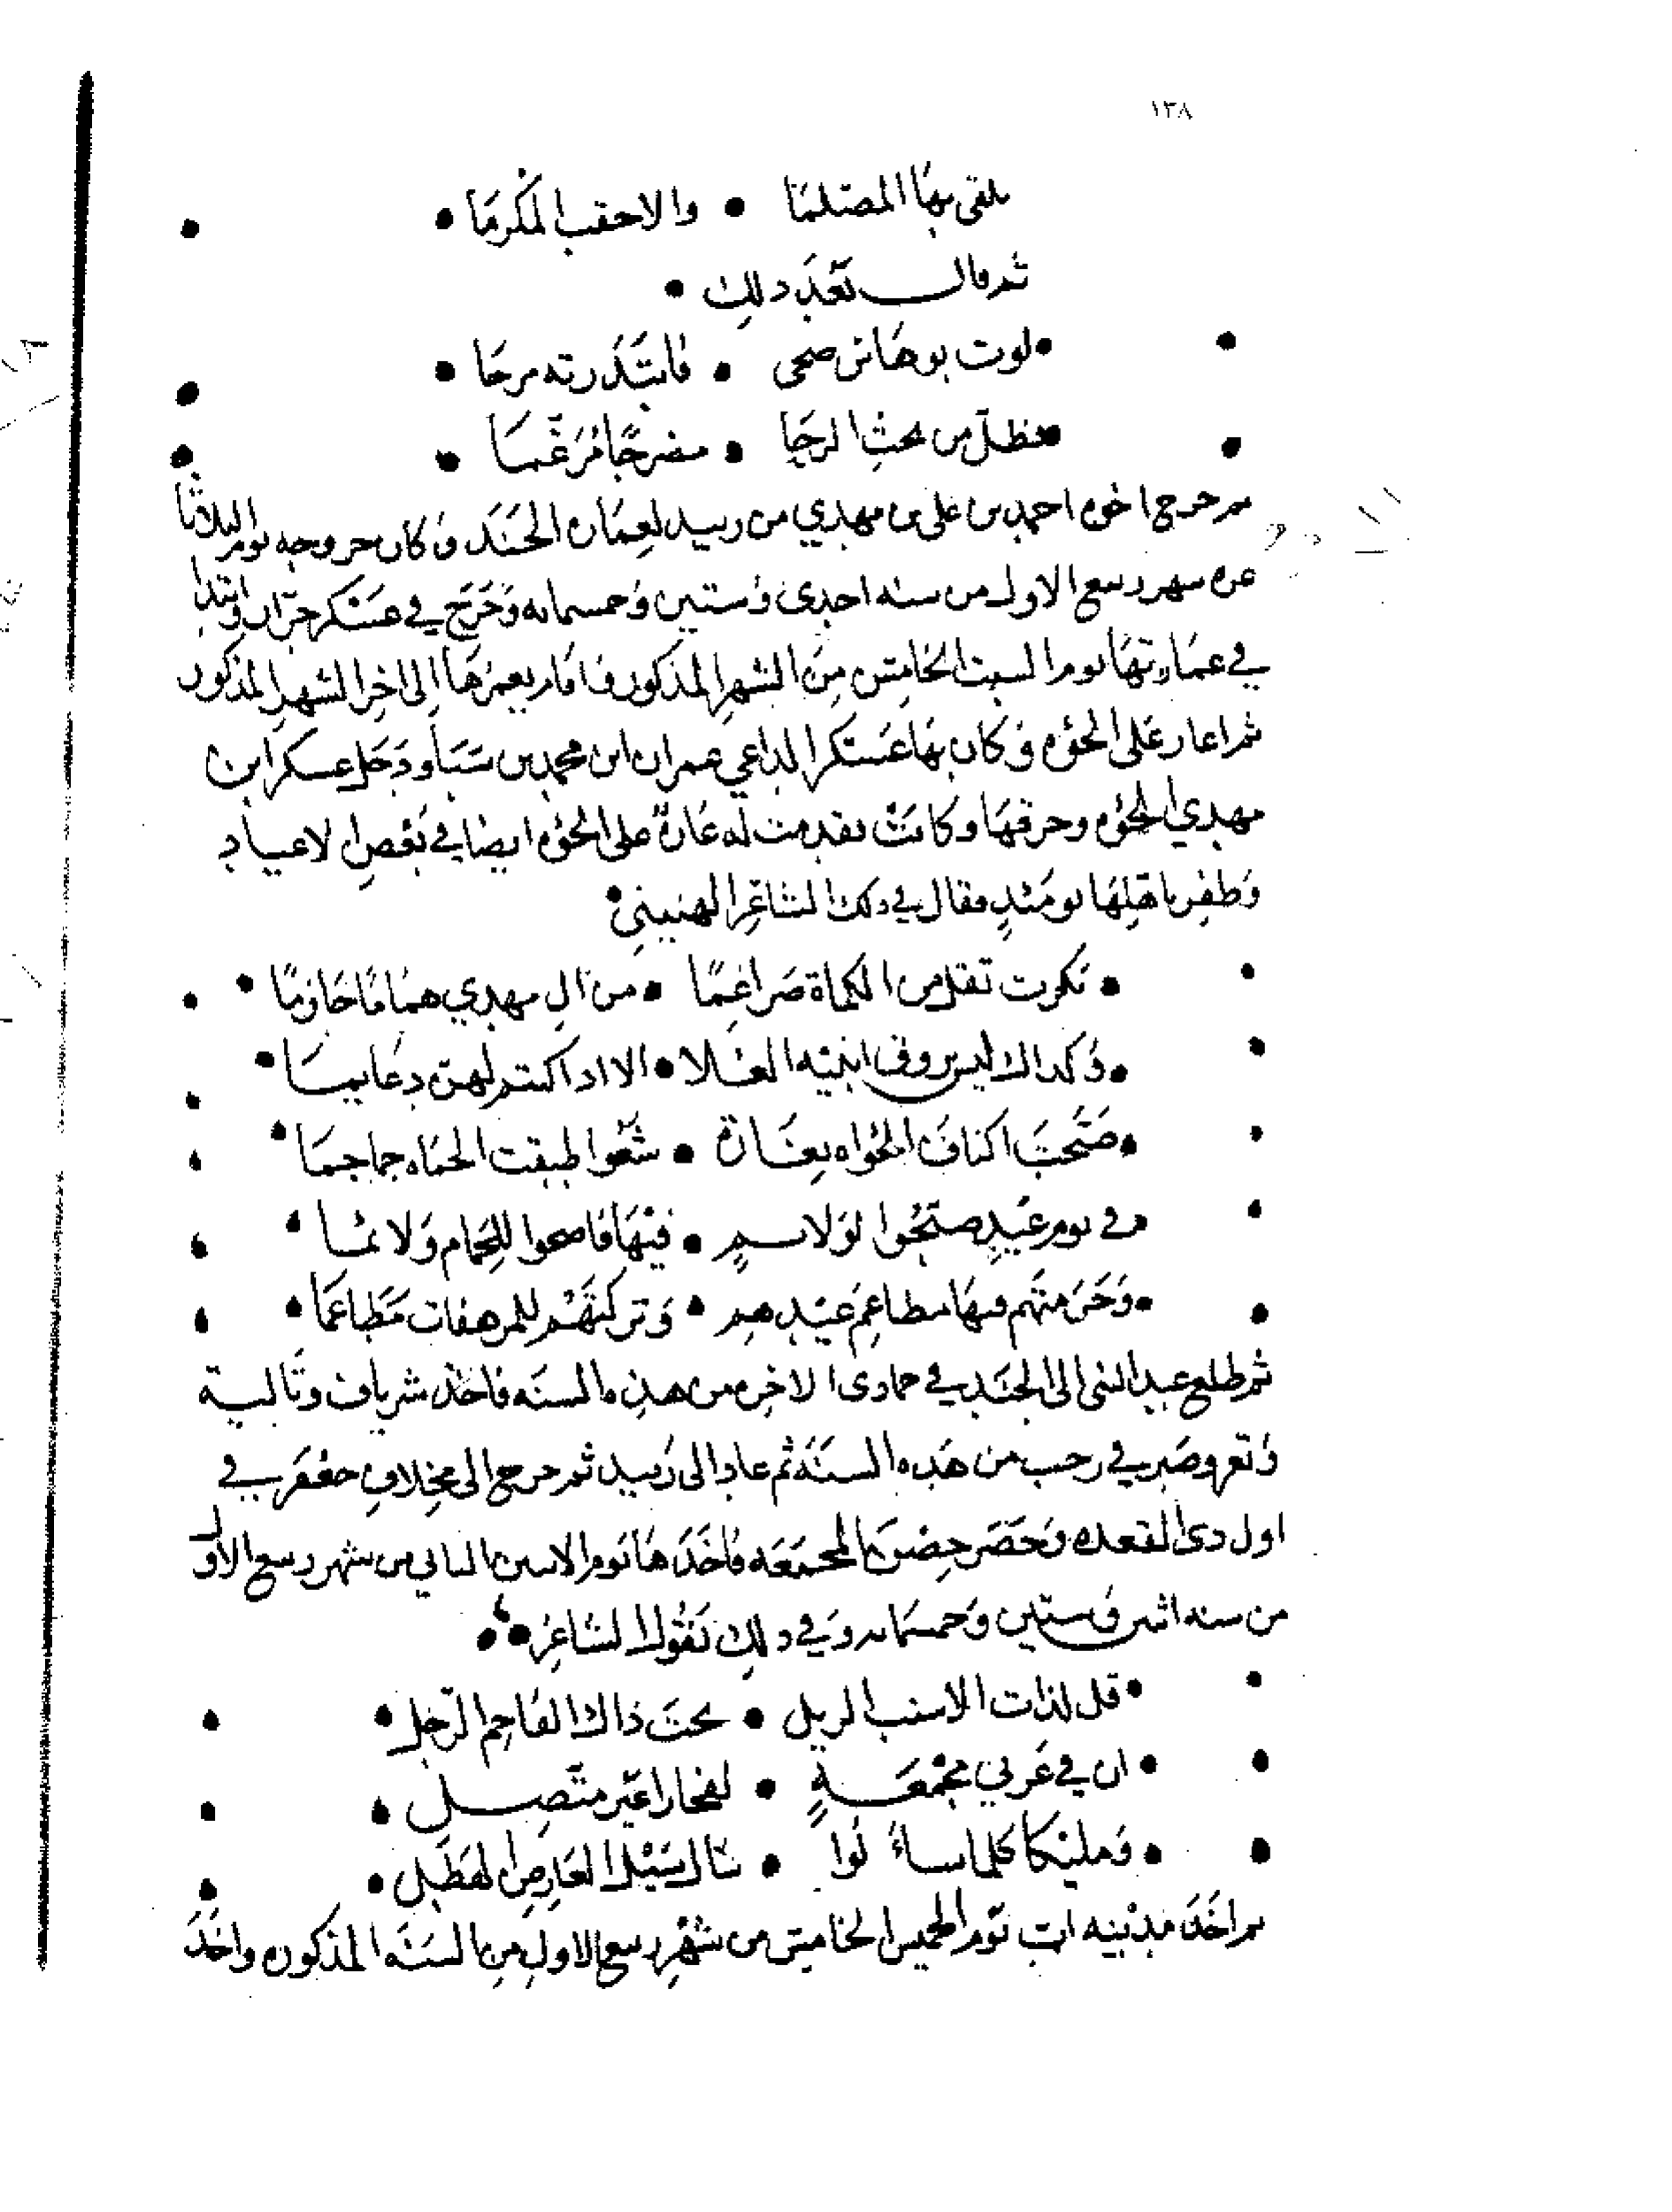 ١٣٨
يلقى بها المصلما • والاحقب المكرما •
ثم قال بعد ذلك •
فظل من تحت الرجا • مضرجا مرغما •
ثم خرج اخوه احمد بن على بن مهدي من زبيد لعمارة الجند وكان خروجه يوم الثلاثا
غرة شهر ربيع الاول من سنة احدى وستين وخمسمائة وخرج في عسكر جرار وابتدا
في عمارتها يوم السبت الخامس من الشهر المذكور فاقام يعمرها الى اخر الشهر المذكور
ثم اغار على الجؤه وكان بها عسكر الداعي عمران ابن محمد بن سبا ودخل عسكر ابن
مهدي الجؤه وحرقها وكانت تقدمت له غارة على الجؤه ايضا في بعض الاعياد
وظفر باهلها يومئذ فقال في ذلك الشاعر الهبيني •
• نكرت تقل من الكماة ضراغما • من ال مهدي هماما حازما •
• وكذاك ليس روق ابنية العلا • الا اذا كنتم لهن دعايما •
• صبحت اكناف الجواه بغارة • شعوا طبقت الحماه جماجما •
• في يوم عيد صبحوا لولايم • فيها فاضحوا للحمام ولائما •
• وحرمتهم فيها مطاعم عيدهم • وتركتهم للمرهفات مطاعما •
ثم طلع عبد النبي الى الجند في جمادى الاخره من هذه السنه فاخذ شرياف وتالبة
وتعز وصبر في رجب من هذه السنة ثم عاد الى زبيد ثم خرج الى مخلاف جعفر في
اول ذى القعده وحصر حصن المجمعه فاخذها يوم الاثنين الثاني من شهر ربيع الاول
من سنة اثنين وستين وخمسمائه وفي ذلك يقول الشاعر •
• قل لذات الاشنب الرتل • تحت ذاك الفاحم الرجل •
• ان في غربي مجمعة • لفخارا غير متصل •
• ومليكا كلما سا لوا • سال سيل العارض الهطل •
ثم اخذ مدينة اب يوم الخميس الخامس من شهر ربيع الاول من السنه المذكوره واخذ